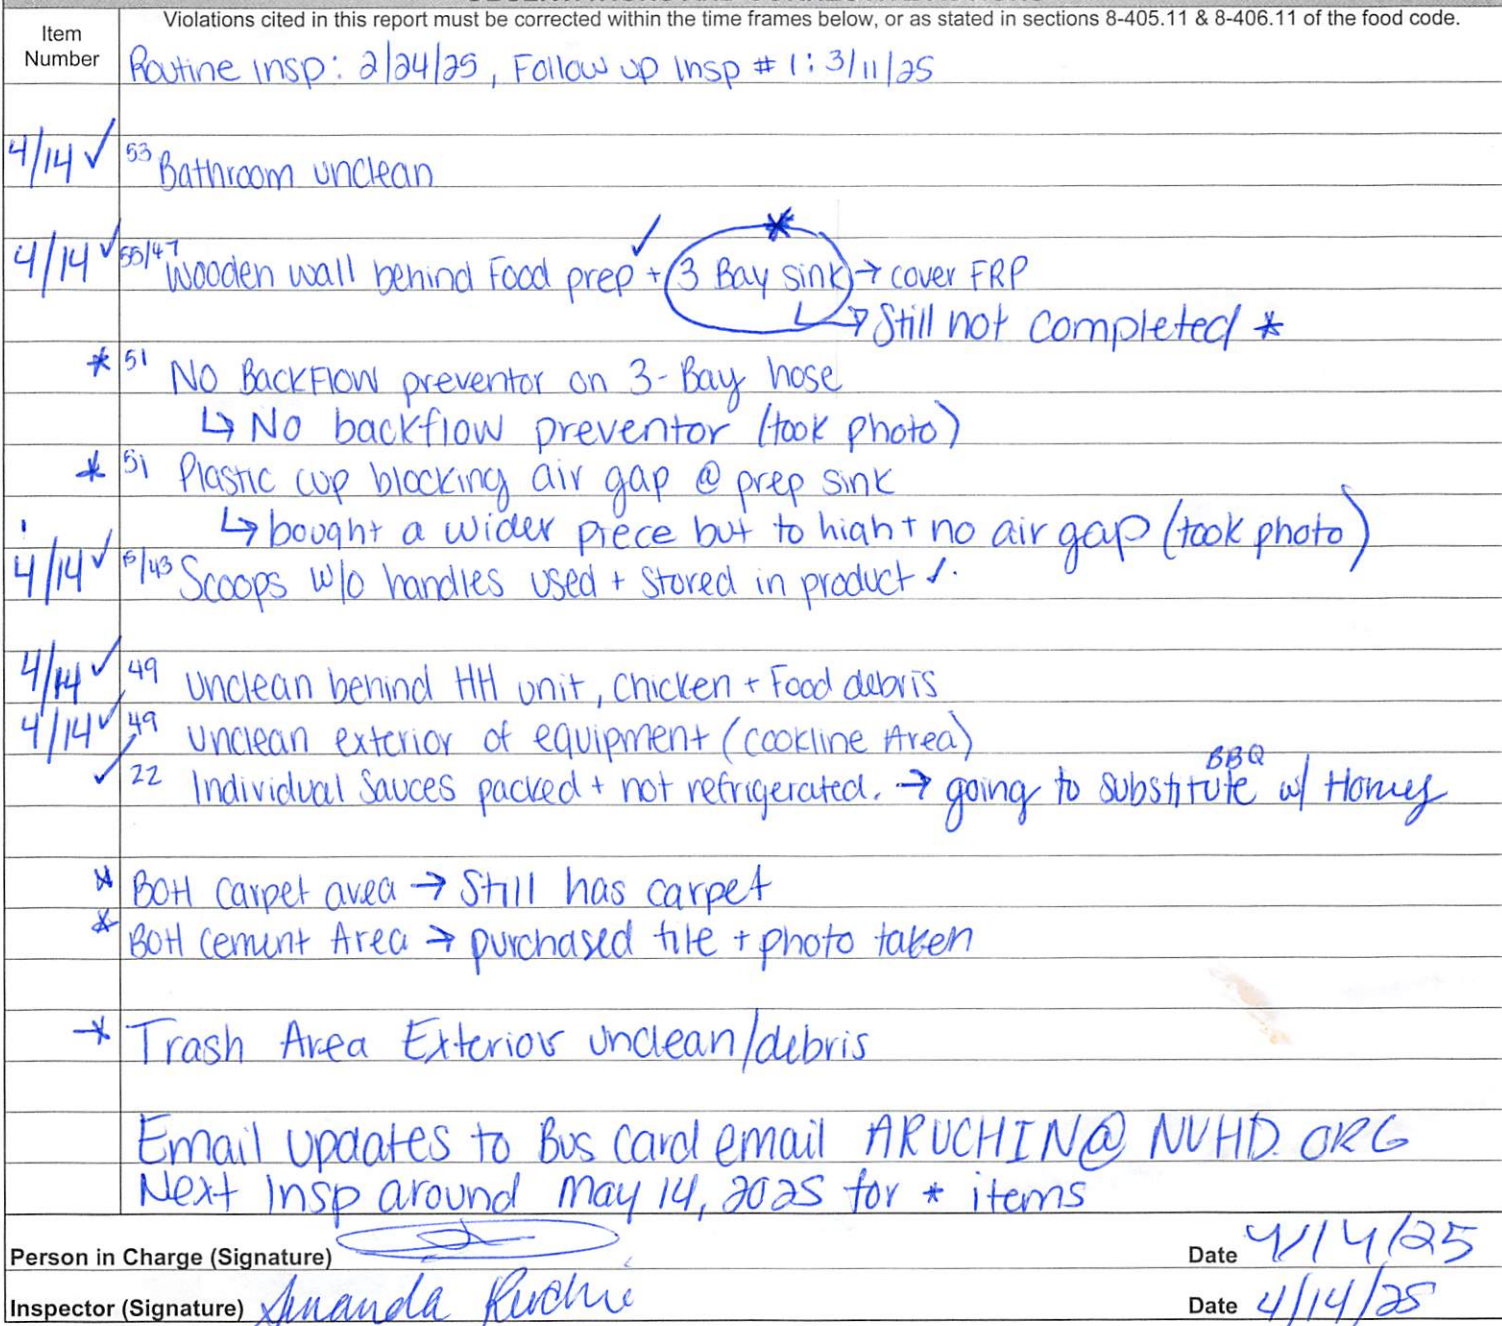 Violations cited in this report must be corrected within the time frames below, or as stated in sections 8-405.11 & 8-406.11 of the food code.
Item Number
Routine insp: 2/24/25, Follow up Insp # 1: 3/11/25
4/14 ✓ 53 Bathroom unclean
4/14 ✓ 55/47 Wooden wall behind Food prep ✓ + 3 Bay sink * → cover FRP
↳ Still not completed *
* 51 No Backflow preventor on 3-Bay hose
↳ No backflow preventor (took photo)
* 51 Plastic cup blocking air gap @ prep sink
↳ bought a wider piece but to high + no air gap (took photo)
4/14 ✓ 15/43 Scoops w/o handles used + stored in product ✓.
4/14 ✓ 49 unclean behind HH unit, chicken + Food debris
4/14 ✓ 49 unclean exterior of equipment (cookline Area)
✓ 22 Individual Sauces packed + not refrigerated. → going to substitute BBQ w/ Honey
* BOH Carpet area → Still has carpet
* BOH cement Area → purchased tile + photo taken
* Trash Area Exterior unclean/debris
Email updates to Bus card email ARUCHIN@NVHD.ORG
Next Insp around May 14, 2025 for * items
Person in Charge (Signature) Date 4/14/25
Inspector (Signature) Amanda Ruchin Date 4/14/25